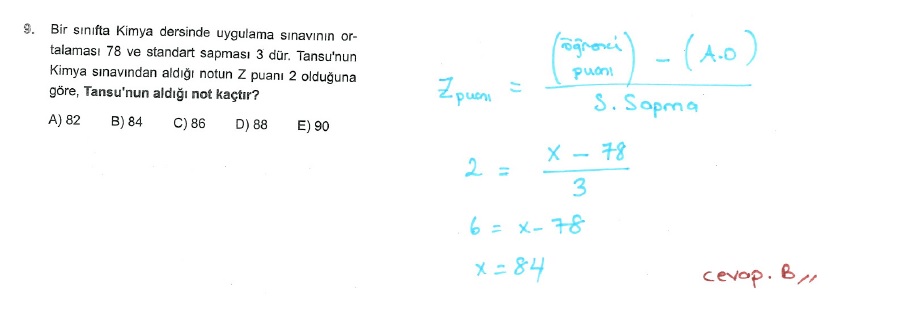 9. Bir sınıfta Kimya dersinde uygulama sınavının or-
talaması 78 ve standart sapması 3 dür. Tansu'nun
Kimya sınavından aldığı notun Z puanı 2 olduğuna
göre, Tansu'nun aldığı not kaçtır?
A) 82 B) 84 C) 86 D) 88 E) 90
Z puanı = (öğrenci puanı) - (A.O)
S. Sapma
2 = x - 78
3
6 = x - 78
x = 84
cevap. B,,